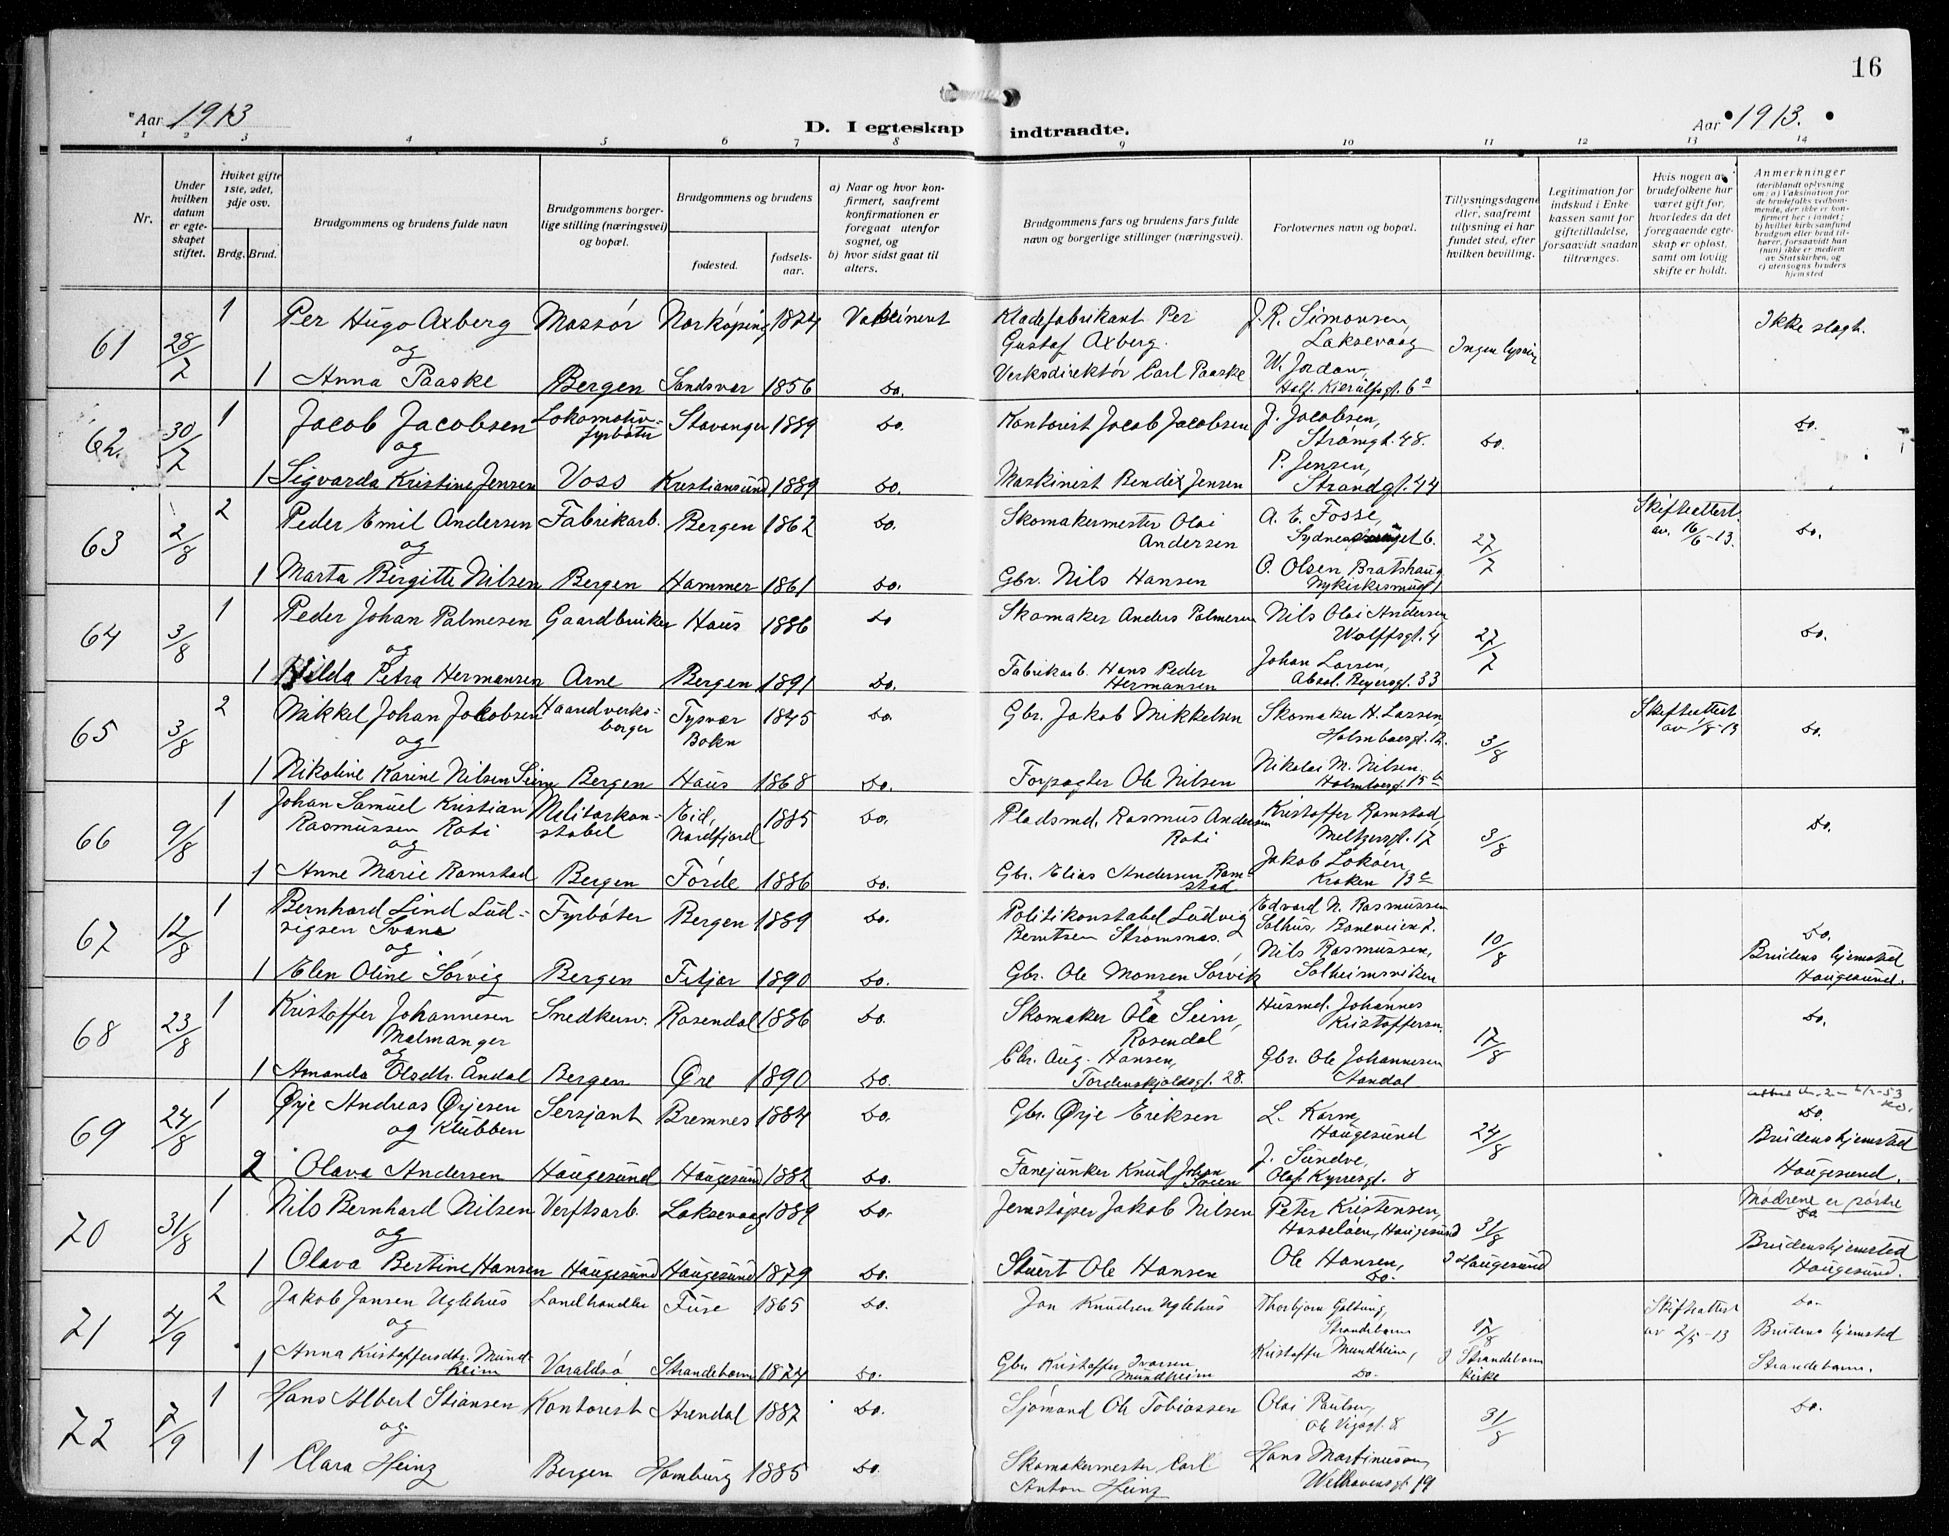 16
Aar 1913
D. I egteskap indtraadte.
Aar 1913.
1 2 3 4 5 6 7 8 9 10 11 12 13 14
Nr.
Under hvilken datum er egteskapet stiftet.
Hviket gifte 1ste, 2det, 3dje osv.
Brdg. Brud.
Brudgommens og brudens fulde navn
Brudgommens borgerlige stilling (næringsvei) og bopæl.
Brudgommens og brudens
fødested.
fødselsaar.
a) Naar og hvor konfirmert, saafremt konfirmationen er foregaat utenfor sognet, og
b) hvor sidst gaat til alters.
Brudgommens fars og brudens fars fulde navn og borgerlige stillinger (næringsvei).
Forlovernes navn og bopæl.
Tillysningsdagene eller, saafremt tillysning ei har fundet sted, efter hvilken bevilling.
Legitimation for indskud i Enkekassen samt for giftetilladelse, forsaavidt saadan tiltrænges.
Hvis nogen av brudefolkene har været gift før, hvorledes da det foregaaende egteskap er opløst, samt om lovlig skifte er holdt.
Anmerkninger
(deriblandt oplysning om: a) Vaksination for de brudefolks vedkommende, der ikke er konfirmert her i landet; b) hvilket kirkesamfund brudgom eller brud tilhører, forsaavidt han (hun) ikke er medlem av Statskirken, og c) utensogns bruders hjemsted
61 28/7 1 Per Hugo Axberg Massør Norkøping 1874 Vaksinert Kladefabrikant Per Gustaf Axberg. J. R. Simonsen, Laksevaag Ingen lysning Ikke slegt.
og
1 Anna Paaske Bergen Sandsvær 1856 Do. Verksdirektør Carl Paaske W. Jordan, Half. Kierulfsgt. 6a
62. 30/7 1 Jacob Jacobsen Lokomotivfyrbøter Stavanger 1889 Do. Kontorist Jacob Jacobsen J. Jacobsen, Strømgt. 48. Do. Do.
og
1 Sigvarda Kristine Jensen Voss Kristiansund 1889 Do. Maskinist Bendix Jensen P. Jensen, Strandgt. 44
63 2/8 2 Peder Emil Andersen Fabrikarb. Bergen 1862 Do. Skomakermester Olai Andersen A. E. Fosse, 27/7 Skifteattest av. 16/6-13. Do.
og
1 Marta Birgitte Nilsen Bergen Hammer 1861 Do. Gbr. Nils Hansen O. Olsen Bratshaug Nykirkesmug 1
64 3/8 1 Peder Johan Palmesen Gaardbruker Haus 1886 Do Skomaker Anders Palmesen Nils Olai Andersen Wolffsgt. 4 27/7 Do.
og
1 Hilda Petra Hermansen Arne Bergen 1891 Do. Fabrikarb. Hans Peder Hermansen Johan Larsen, Absal. Beyersgt. 33
65 3/8 2 Mikkel Johan Jacobsen Haandverksborger Tysvær Bokn 1845 Do. Gbr. Jakob Mikkelsen Skomaker H. Larsen, Holmboesgt. 12. 3/8 Skifteattest av 1/8-13 Do.
og
1 Nikoline Karine Nilsen Seim Bergen Haus 1868 Do. Forpagter Ole Nilsen Nikolai M. Nilsen, Holmboesgt. 15b
66 9/8 1 Johan Samuel Kristian Rasmussen Roti Militærkonstabel Eid, Nordfjord 1885 Do. Pladsmd. Rasmus Andersen Roti Kristoffer Ramstad, Meltzersgt. 17 3/8 Do.
og
1 Anne Marie Ramstad Bergen Førde 1886 Do. Gbr. Elias Andersen Ramstad Jakob Lokøen, Kroken 13a
67 12/8 1 Bernhard Lind Ludvigsen Svane Fyrbøter Bergen 1889 Do. Politikonstabel Ludvig Berntsen Strømsnæs. Edvard N. Rasmussen Solhus, Baneveien 7. 10/8 Do.
og
1 Elen Oline Sørvig Bergen Fitjar 1890 Do. Gbr. Ole Monsen Sørvik Nils Rasmussen, Solheimsviken Brudens hjemsted Haugesund.
68 23/8 1 Kristoffer Johannesen Malmanger Snedkersv. Rosendal 1886 Do. Skomaker Ola Seim, Rosendal Husmd. Johannes Kristoffersen 17/8 Do.
og
1 Amanda Olsdtr. Åndal Bergen Øre 1890 Do. Chr. Aug. Hansen, Tordenskjoldsgt. 28. Gbr. Ole Johannesen Aandal
69 24/8 1 Ørje Andreas Ørjesen Klubben Sersjant Bremnes 1884 Do. Gbr. Ørje Eriksen L. Karm, Haugesund 24/8 Do.
og
2 Olava Andersen Haugesund Haugesund 1882 Do. Fanejunker Knud Johan Svien J. Sundve, Olaf Kyrresgt. 8 Brudens hjemsted Haugesund.
70 31/8 1 Nils Bernhard Nilsen Verftsarb. Laksevaag 1889 Do. Jernstøper Jakob Nilsen Peter Kristensen, Hasseløen, Haugesund 31/8 Mødrene er søstre Do
og
1 Olava Bertine Hansen Haugesund Haugesund 1879 Do. Stuert Ole Hansen Ole Hansen, Do. I Haugesund Brudens hjemsted Haugesund.
71 4/9 2 Jakob Jansen Uglehus Landhandler Fuse 1865 Do. Jan Knudsen Uglehus Thorbjørn Galtung, Strandebarm 17/8 Skifteattest av 2/5-13 Do.
og
1 Anna Kristoffersdtr. Mundheim Varaldsø Strandebarm 1874 Do. Gbr Kristoffer Ivarsen Mundheim Kristoffer Mundheim, Do. I Strandebarm Kirke Brudens hjemsted Strandebarm.
72 7/9 1 Hans Albert Stiansen Kontorist Arendal 1887 Do. Sjømand Ole Tobiassen Olai Paulsen, Ole Vigsgt. 8 31/8 Do.
og
1 Clara Heinz Bergen Hamburg 1885 Do. Skomakermester Carl Anton Heinz Hans Martinussen, Welhavensgt. 19